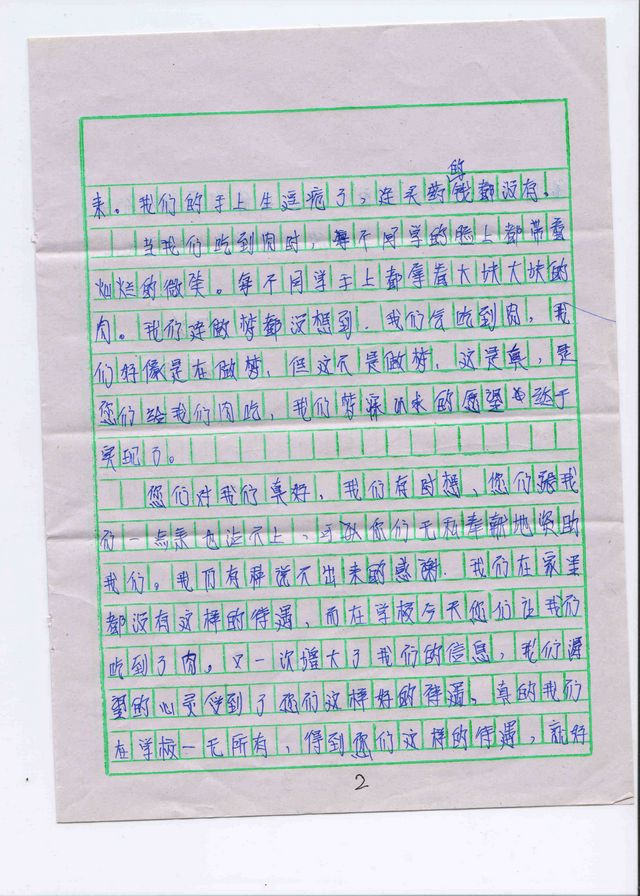 的
来。我们的手上生连疮了，连买药钱都没有。
当我们吃到肉时，每个同学的脸上都带着
灿烂的微笑。每个同学手上都拿着大块大块的
肉。我们连做梦都没想到，我们会吃到肉，我
们好像是在做梦，但这不是做梦，这是真，是
您们给我们肉吃，我们梦深以求的愿望终于
实现了。
您们对我们真好，我们有时想，您们跟我
们一点亲也沾不上，可以你们无私奉献地资助
我们。我们有种说不出来的感谢，我们在家里
都没有这样的待遇，而在学校今天您们让我们
吃到了肉。又一次增大了我们的信息，我们渴
望的心灵受到了您们这样好的待遇，真的我们
在学校一无所有，得到您们这样的待遇，就好
2